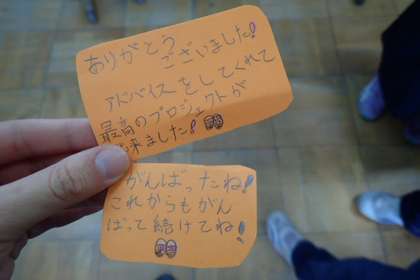 ありがとう
ございました!
アドバイスをしてくれて
最高のプロジェクトが
出来ました!
がんばったね!
これからもがん
ばって続けてね!